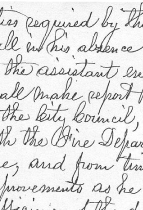 ties required by the
ell in his absence
the assistant en
all make report t
the City Council,
th the Fire Depar
e, and from tim
provements as he